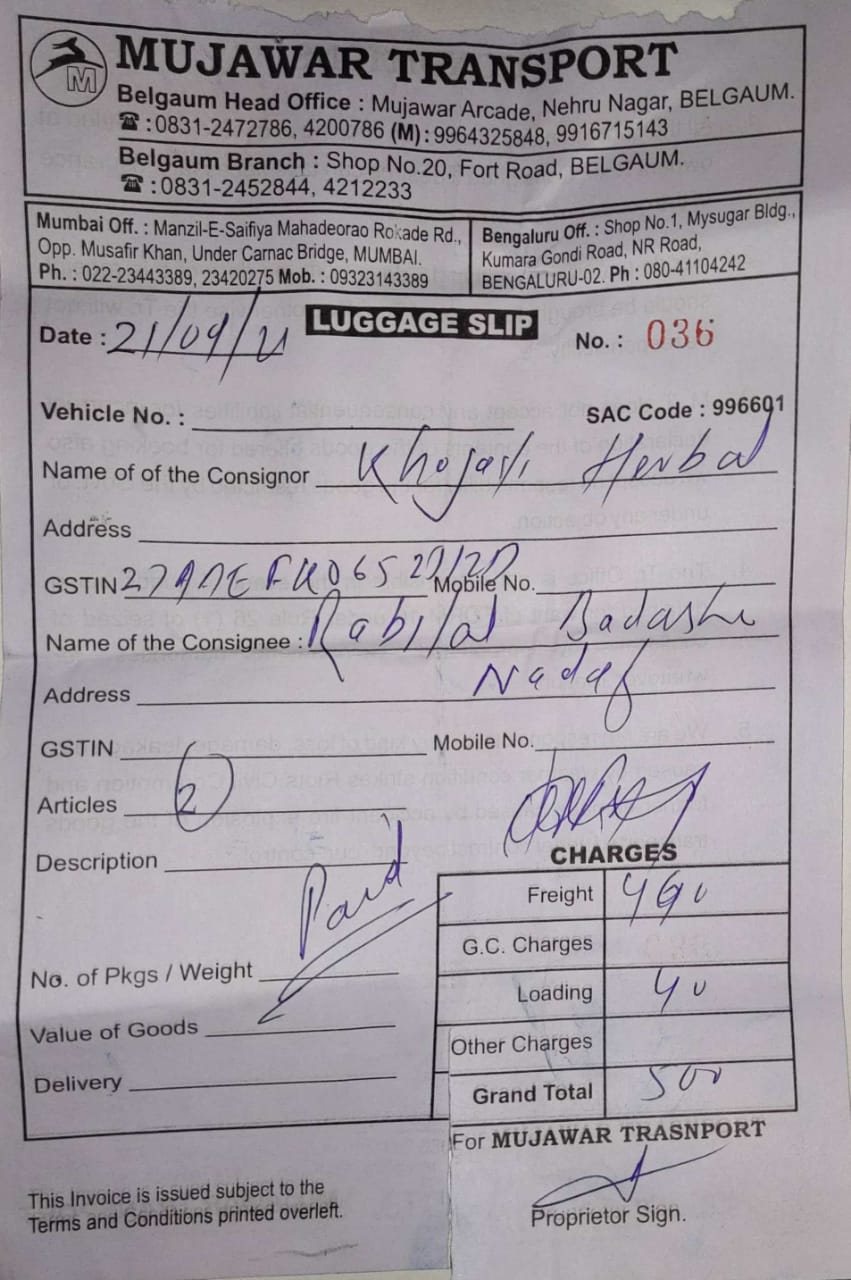 MUJAWAR TRANSPORT
M
Belgaum Head Office : Mujawar Arcade, Nehru Nagar, BELGAUM.
☎ :0831-2472786, 4200786 (M) : 9964325848, 9916715143
Belgaum Branch : Shop No.20, Fort Road, BELGAUM.
☎ :0831-2452844, 4212233
Mumbai Off. : Manzil-E-Saifiya Mahadeorao Rokade Rd.,
Opp. Musafir Khan, Under Carnac Bridge, MUMBAI.
Ph. : 022-23443389, 23420275 Mob. : 09323143389
Bengaluru Off. : Shop No.1, Mysugar Bldg.,
Kumara Gondi Road, NR Road,
BENGALURU-02. Ph : 080-41104242
LUGGAGE SLIP
Date : 21/09/21
No. : 036
Vehicle No. :
SAC Code : 996601
Name of of the Consignor Khojati Herbal
Address
GSTIN
Mobile No.
Name of the Consignee : Rabilal Badashe
Address Nadaf
GSTIN
Mobile No.
Articles 2
Description
Paid
No. of Pkgs / Weight
Value of Goods
Delivery
CHARGES
Freight 460
G.C. Charges
Loading 40
Other Charges
Grand Total 500
For MUJAWAR TRASNPORT
Proprietor Sign.
This Invoice is issued subject to the
Terms and Conditions printed overleft.